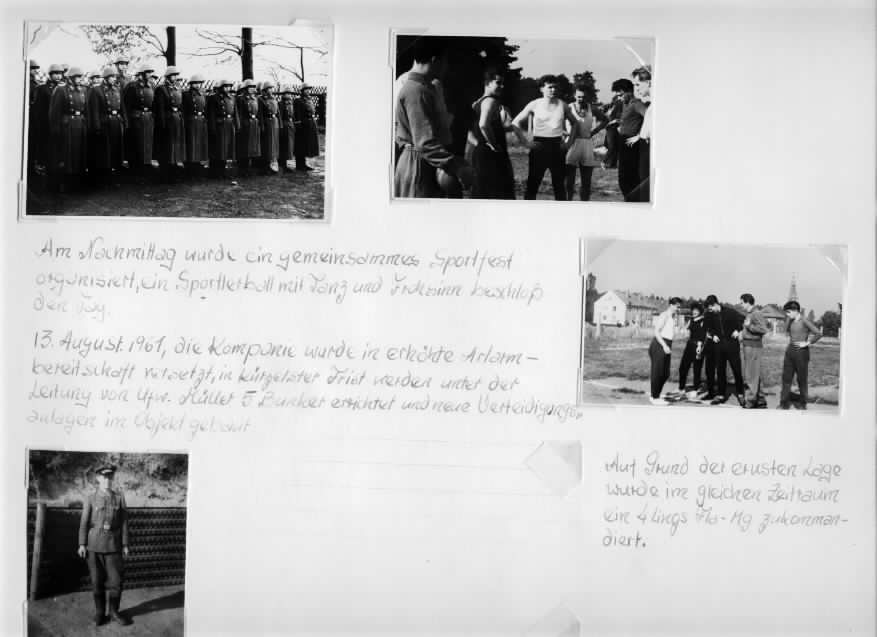 Am Nachmittag wurde ein gemeinsammes Sportfest
organisiert, ein Sportlerball mit Tanz und Frohsinn beschloß
den Tag.
13. August 1961, die Kompanie wurde in erhöhte Alarm-
bereitschaft versetzt, in kürzester Frist werden unter der
Leitung von Ufw. 5 Bunker errichtet und neue Verteidigungs-
anlagen im Objekt gebaut.
Auf Grund der ernsten Lage
wurde im gleichen Zeitraum
ein 4lings Fla-Mg zukomman-
diert.